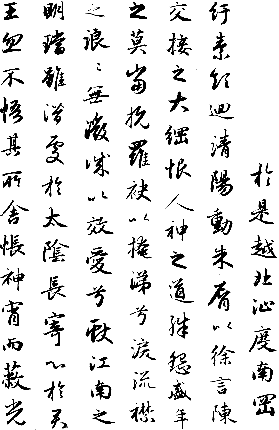 於是越北沚度南岡
紆素領迴清陽動朱脣以徐言陳
交接之大綱恨人神之道殊怨盛年
之莫當抗羅袂以掩涕兮淚流襟
之浪〻無微情以效愛兮獻江南之
明璫雖潛處於太陰長寄心於君
王忽不悟其所舍悵神宵而蔽光